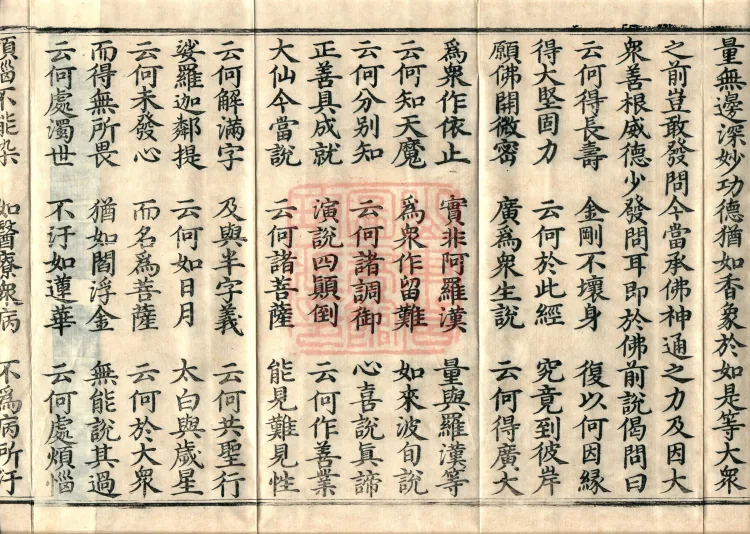 量無邊深妙功德猶如香象於如是等大衆
之前豈敢發問今當承佛神通之力及因大
衆善根威德少發問耳即於佛前說偈問曰
云何得長壽　金剛不壞身　復以何因緣
得大堅固力　云何於此經　究竟到彼岸
願佛開微密　廣爲衆生說　云何得廣大
爲衆作依止　實非阿羅漢　量與羅漢等
云何知天魔　爲衆作留難　如來波旬說
云何分別知　云何諸調御　心喜說眞諦
正善具成就　演說四顛倒　云何作善業
大仙今當說　云何諸菩薩　能見難見性
云何解滿字　及與半字義　云何共聖行
娑羅迦鄰提　云何如日月　太白與歲星
云何未發心　而名爲菩薩　云何於大衆
而得無所畏　猶如閻浮金　無能說其過
云何處濁世　不汙如蓮華　云何處煩惱
煩惱不能染　如醫療衆病　不爲病所汙